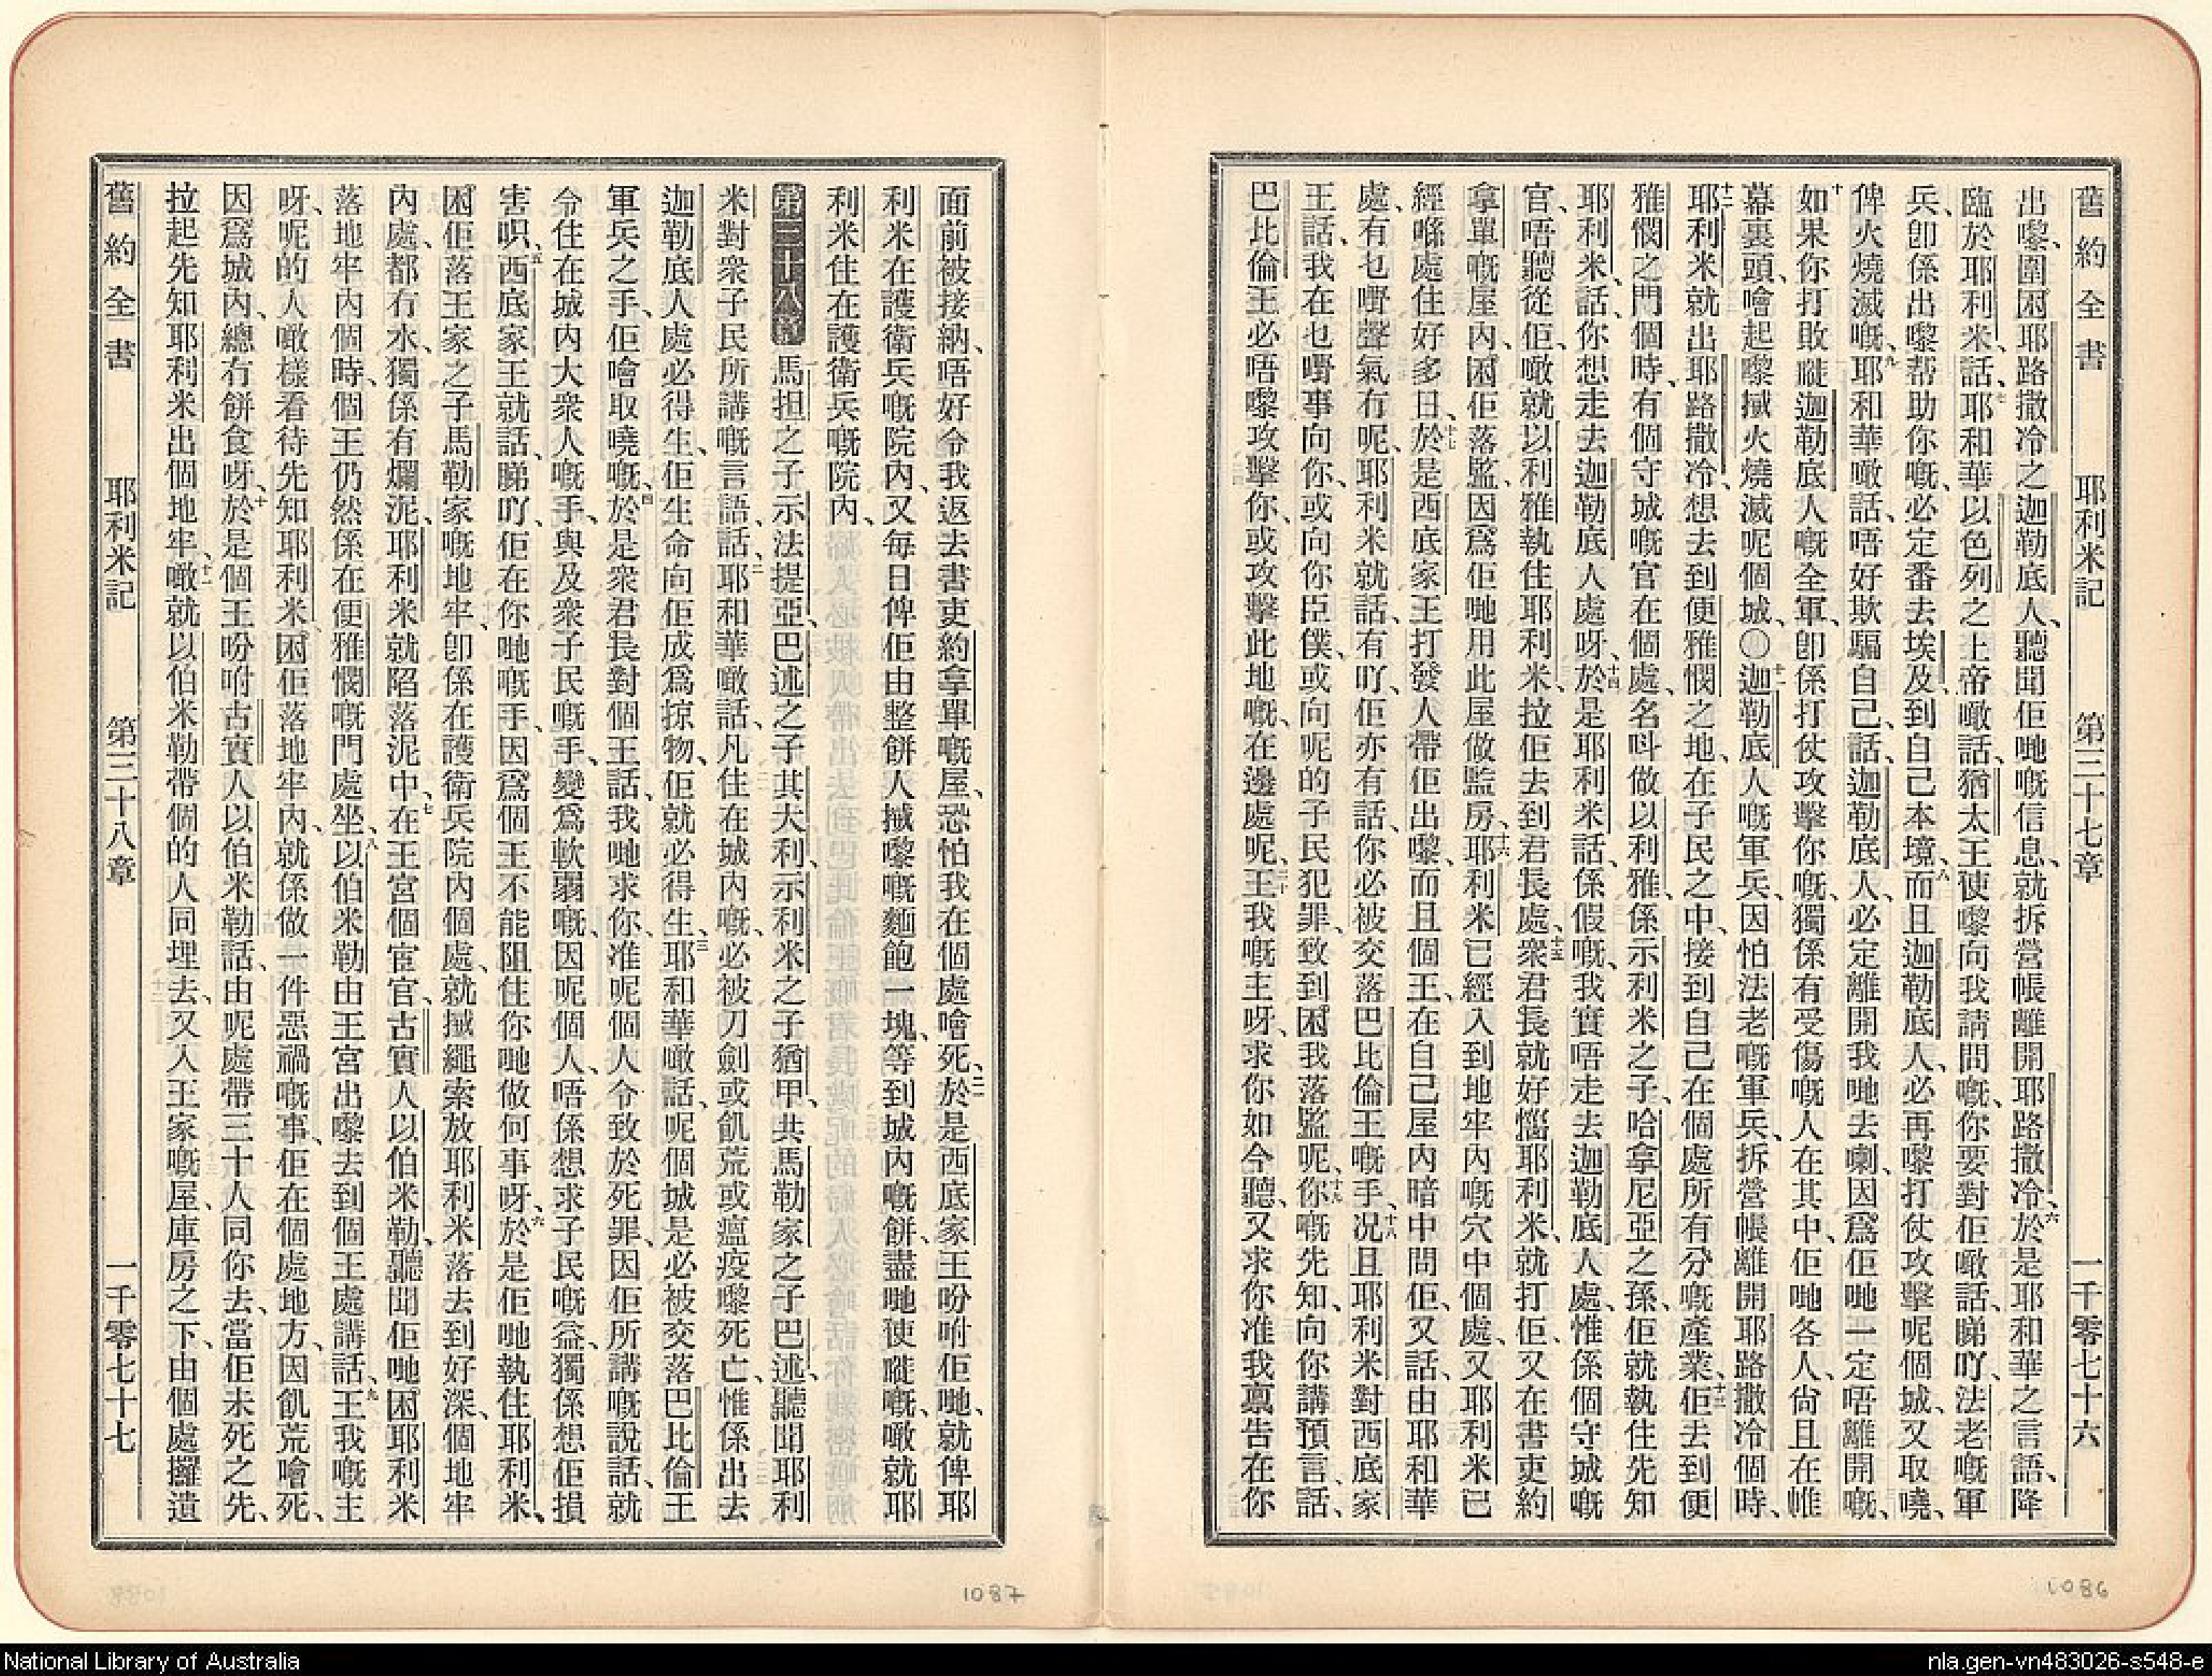 舊約全書 耶利米記 第三十七章 一千零七十六
出嚟、圍困耶路撒冷之迦勒底人、聽聞佢哋嘅信息、就拆營帳離開耶路撒冷、六於是耶和華之言語、降
臨於耶利米、話、七耶和華以色列之上帝噉話、猶太王使嚟向我請問嘅、你要對佢噉話、睇吖、法老嘅軍
兵、卽係出嚟帮助你嘅、必定番去埃及、到自己本境、八而且迦勒底人、必再嚟打仗攻擊呢個城、又取嘵、
俾火燒滅嘅、九耶和華噉話、唔好欺騙自己、話、迦勒底人、必定離開我哋去喇、因爲佢哋一定唔離開嘅、
十如果你打敗嘥迦勒底人嘅全軍、卽係打仗攻擊你嘅、獨係有受傷嘅人在其中、佢哋各人、尙且在帷
幕裏頭、噲起嚟搣火燒滅呢個城、○十一迦勒底人嘅軍兵、因怕法老嘅軍兵、拆營帳離開耶路撒冷個時、
十二耶利米就出耶路撒冷、想去到便雅憫之地、在子民之中、接到自己在個處所有分嘅產業、十三佢去到便
雅憫之門個時、有個守城嘅官在個處、名呌做以利雅、係示利米之子、哈拿尼亞之孫、佢就執住先知
耶利米、話、你想走去迦勒底人處呀、十四於是耶利米話、係假嘅、我實唔走去迦勒底人處、惟係個守城嘅
官、唔聽從佢、噉就以利雅執住耶利米、拉佢去到君長處、十五衆君長就好惱耶利米、就打佢、又在書吏約
拿單嘅屋內、困佢落監、因爲佢哋用此屋做監房、十六耶利米已經入到地牢內嘅穴中個處、又耶利米已
經喺處住好多日、十七於是西底家王打發人帶佢出嚟、而且個王、在自己屋內暗中問佢、又話、由耶和華
處、有乜嘢聲氣冇呢、耶利米就話、有吖、佢亦有話、你必被交落巴比倫王嘅手、十八况且耶利米對西底家
王話、我在乜嘢事向你、或向你臣僕、或向呢的子民犯罪、致到困我落監呢、十九你嘅先知、向你講預言、話、
巴比倫王必唔嚟攻擊你、或攻擊此地嘅、在邊處呢、二十王我嘅主呀、求你如今聽、又求你准我禀告在你
面前被接納、唔好令我返去書吏約拿單嘅屋、恐怕我在個處噲死、二一於是西底家王吩咐佢哋、就俾耶
利米在護衛兵嘅院內、又每日俾佢由整餅人搣嚟嘅麵飽一塊、等到城內嘅餅、盡哋使嘥嘅、噉就耶
利米住在護衛兵嘅院內、
第三十八章 一馬担之子示法提亞、巴述之子其大利、示利米之子猶甲、共馬勒家之子巴述、聽聞耶利
米對衆子民所講嘅言語、話、二耶和華噉話、凡住在城內嘅、必被刀劍或飢荒或瘟疫嚟死亡、惟係出去
迦勒底人處必得生、佢生命向佢成爲掠物、佢就必得生、三耶和華噉話、呢個城是必被交落巴比倫王
軍兵之手、佢噲取嘵嘅、四於是衆君長對個王話、我哋求你、准呢個人令致於死罪、因佢所講嘅說話、就
令住在城內大衆人嘅手、與及衆子民嘅手、變爲軟弱嘅、因呢個人、唔係想求子民嘅益、獨係想佢損
害呮、五西底家王就話、睇吖、佢在你哋嘅手、因爲個王不能阻住你哋做何事呀、六於是佢哋執住耶利米、
困佢落王家之子馬勒家嘅地牢、卽係在護衛兵院內個處、就搣繩索放耶利米落去到好深、個地牢
內處、都冇水、獨係有爛泥、耶利米就陷落泥中、七在王宮個宦官、古實人以伯米勒、聽聞佢哋困耶利米
落地牢內個時、個王仍然係在便雅憫嘅門處坐、八以伯米勒由王宮出嚟、去到個王處講話、九王我嘅主
呀、呢的人噉樣看待先知耶利米、困佢落地牢內、就係做一件惡禍嘅事、佢在個處地方、因飢荒噲死、
因爲城內總冇餅食呀、十於是個王吩咐古實人以伯米勒話、由呢處帶三十人同你去、當佢未死之先、
拉起先知耶利米出個地牢、十一噉就以伯米勒帶個的人同埋去、又入王家嘅屋、庫房之下、由個處攞遺
舊約全書 耶利米記 第三十八章 一千零七十七
1087
1086
National Library of Australia
nla.gen-vn483026-s548-e